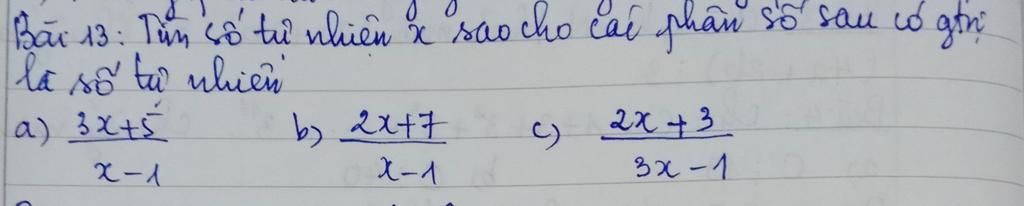 Bài 13: Tìm số tự nhiên x sao cho các phân số sau có gtrị
là số tự nhiên
a) (3x+5)/(x-1) b) (2x+7)/(x-1) c) (2x+3)/(3x-1)